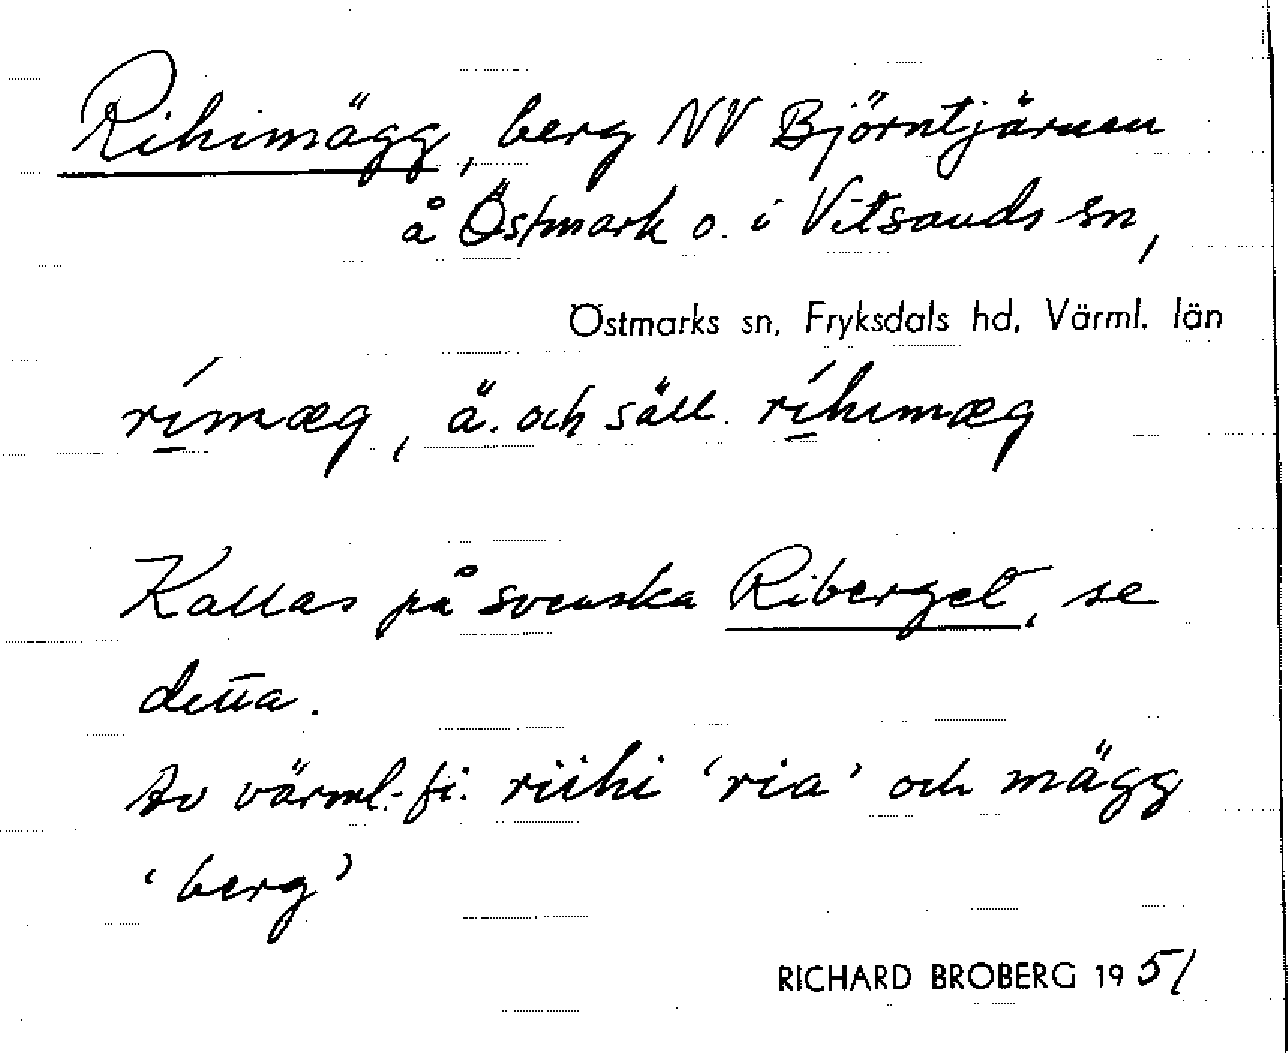 Rihimägg, berg NV Björntjärnen
å Östmark o. i Vitsands sn,
Östmarks sn, Fryksdals hd, Värml. län
rímæg, ä. och säll. ríhimæg
Kallas på svenska Riberget, se
detta.
Av värml.-fi. riihi 'ria' och mägg
'berg'
RICHARD BROBERG 1951